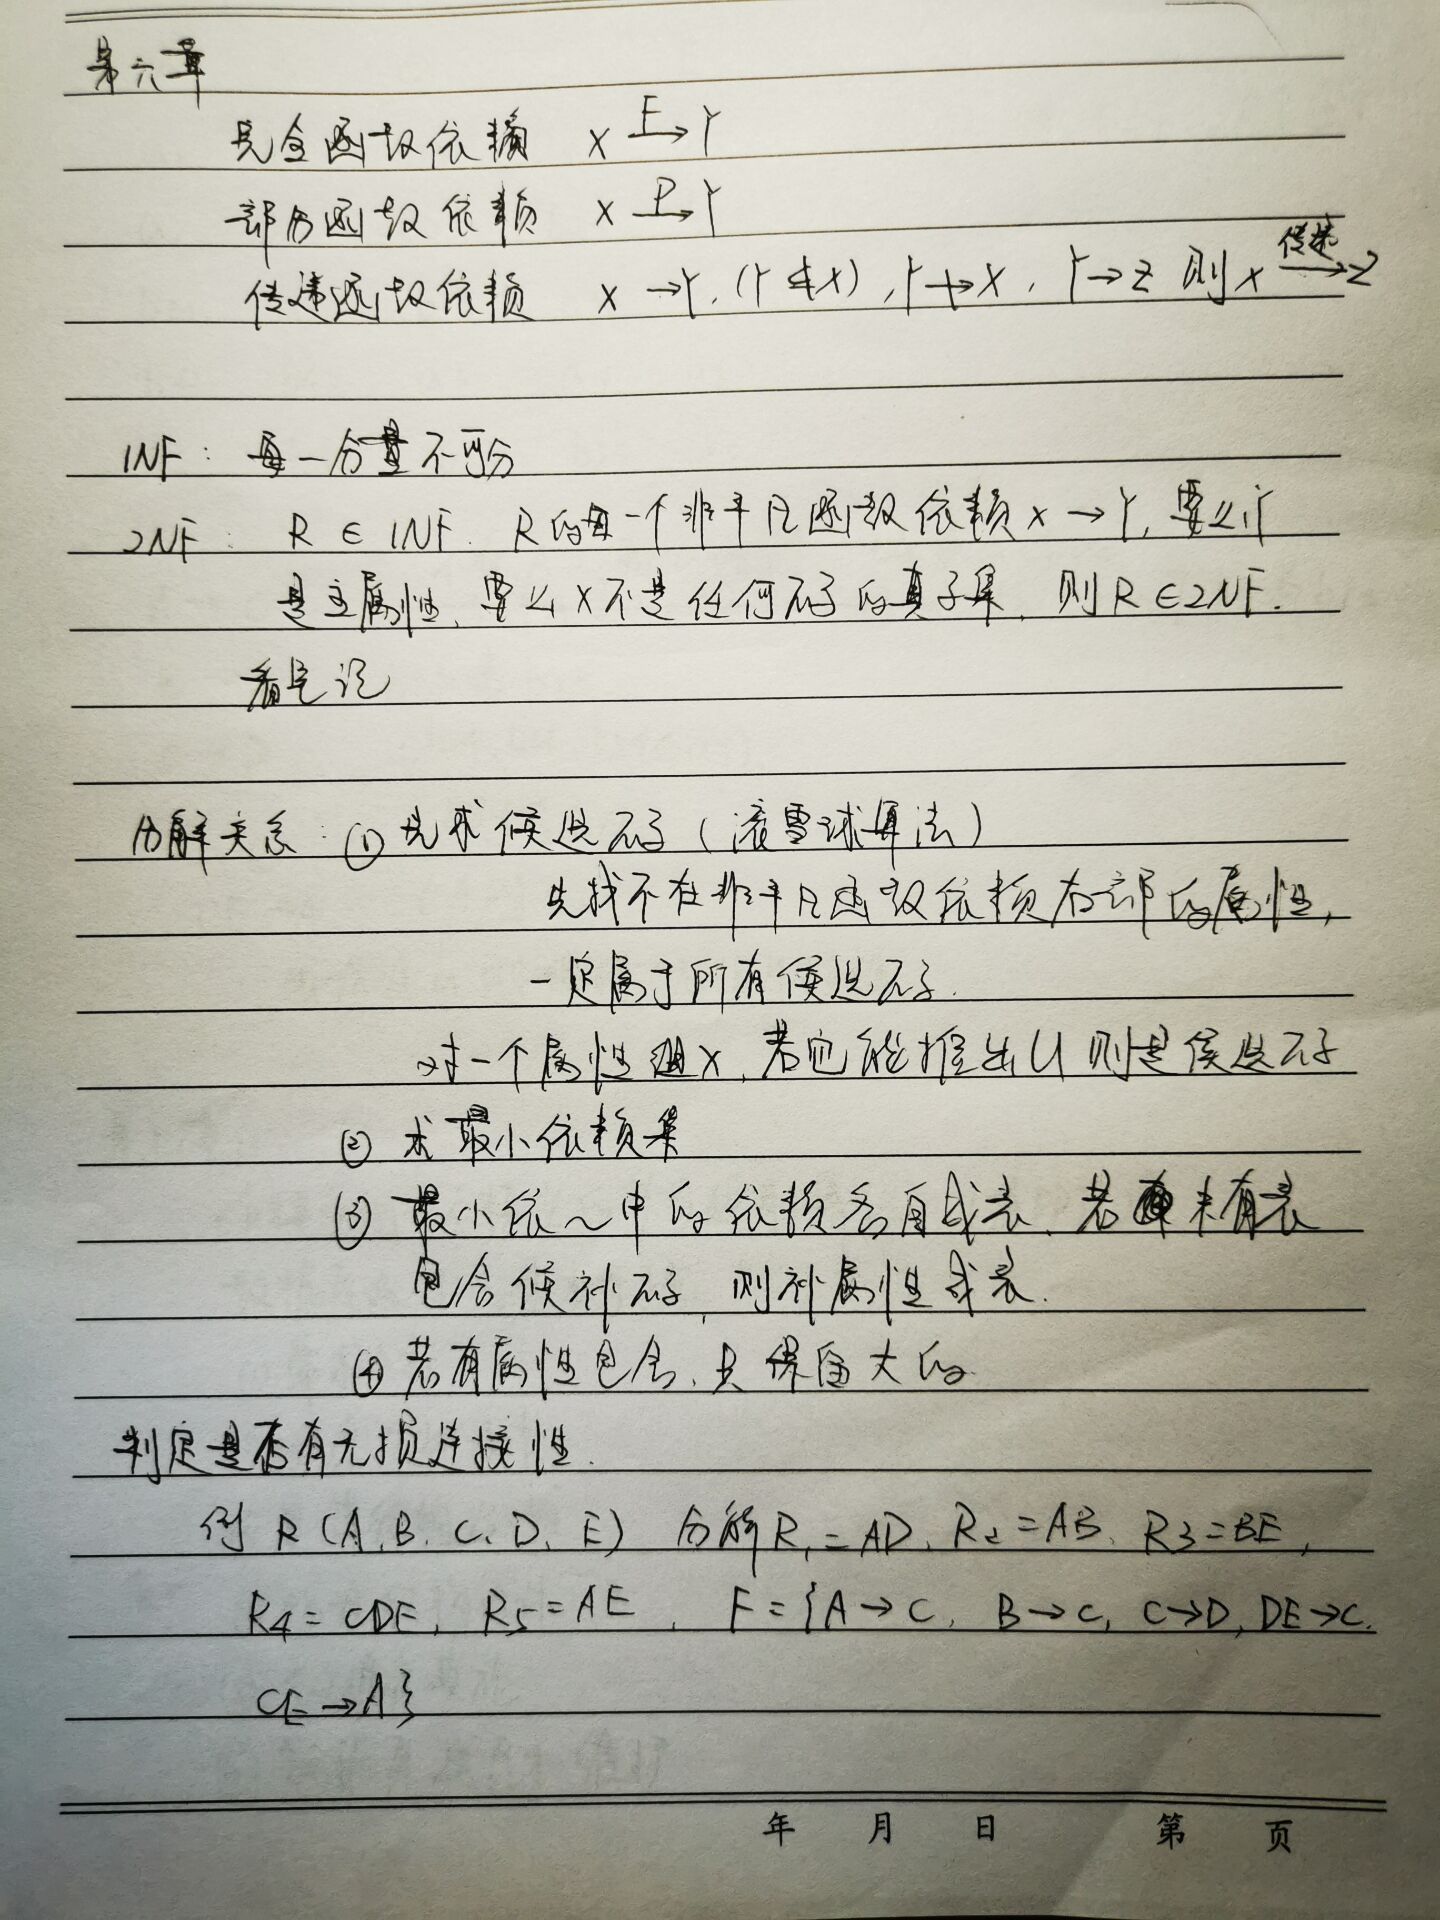 第六章
完全函数依赖 X F→ Y
部分函数依赖 X P→ Y
传递函数依赖 X→Y, (Y⊄X), Y↛X, Y→Z 则 X 传递→ Z
1NF: 每一分量不可分
2NF: R∈1NF. R的每一个非平凡函数依赖X→Y, 要么Y
是主属性, 要么X不是任何码子的真子集, 则R∈2NF.
看笔记
分解关系: ① 先求候选码子(滚雪球算法)
先找不在非平凡函数依赖右部的属性,
一定属于所有候选码子.
对一个属性组X, 若它能推出U则是候选码子
② 求最小依赖集
③ 最小依~中的依赖各自成表, 若未有表
包含候补码子, 则补属性成表.
④ 若有属性包含, 只保留大的
判定是否有无损连接性.
例 R(A, B, C, D, E) 分解R₁=AD, R₂=AB, R3=BE,
R4=CDE, R5=AE, F={A→C, B→C, C→D, DE→C,
CE→A}
年 月 日 第 页